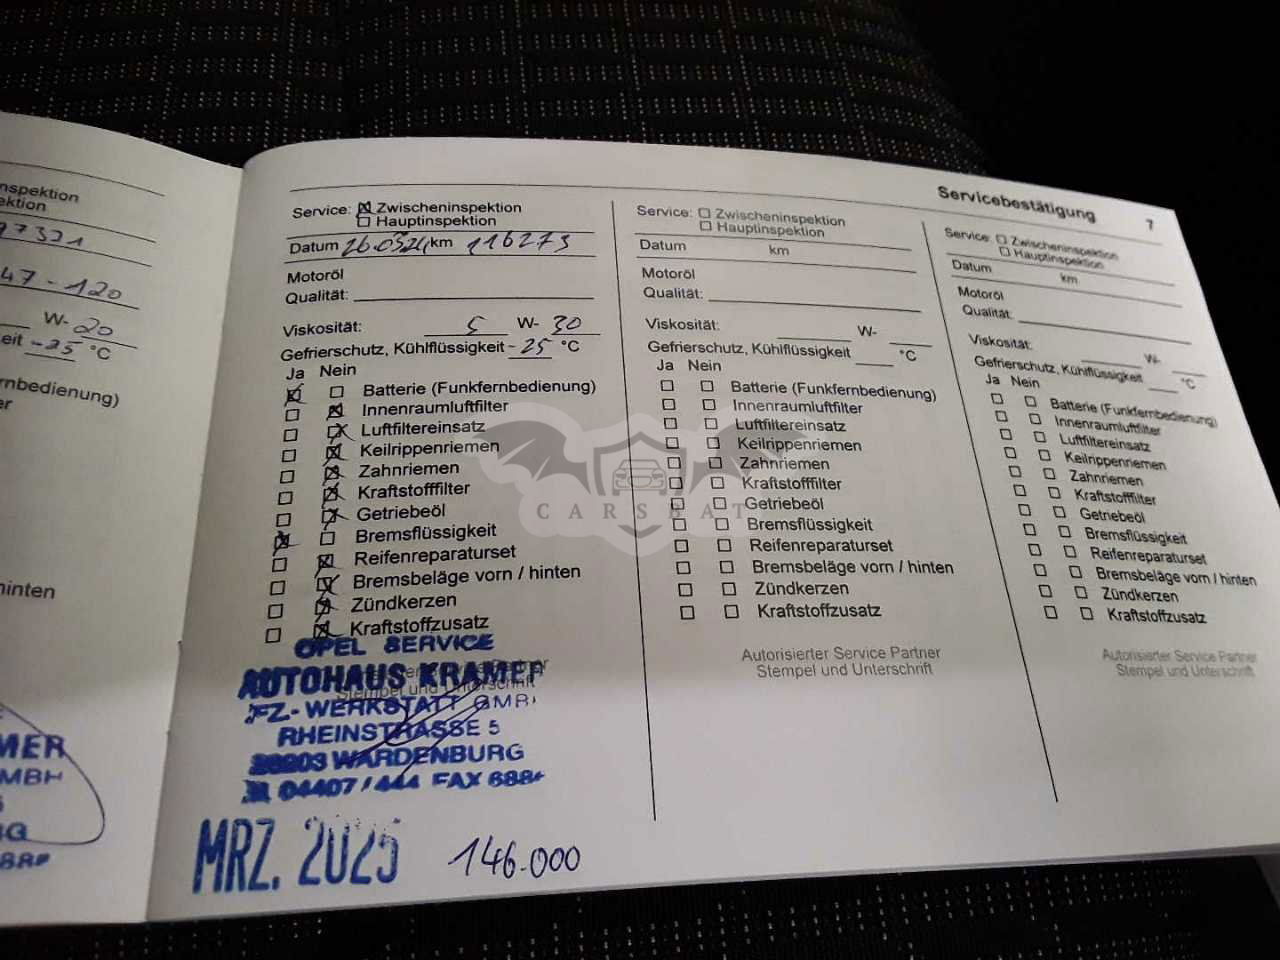 nspektion
ektion
97321
47-120
W- 20
eit -25 °C
rnbedienung)
er
hinten
MER
GMBH
G
Servicebestätigung 7
Service: Zwischeninspektion
Hauptinspektion
Datum 26.0324 km 116273
Motoröl
Qualität:
Viskosität: 5 W- 30
Gefrierschutz, Kühlflüssigkeit -25 °C
Ja Nein
Batterie (Funkfernbedienung)
Innenraumluftfilter
Luftfiltereinsatz
Keilrippenriemen
Zahnriemen
Kraftstofffilter
Getriebeöl
Bremsflüssigkeit
Reifenreparaturset
Bremsbeläge vorn / hinten
Zündkerzen
Kraftstoffzusatz
Stempel und Unterschrift
OPEL SERVICE
AUTOHAUS KRAMER
FZ-WERKSTATT GMBH
RHEINSTRASSE 5
26203 WARDENBURG
04407 / 444 FAX 688
MRZ. 2025 146.000
Service: Zwischeninspektion
Hauptinspektion
Datum km
Motoröl
Qualität:
Viskosität: W-
Gefrierschutz, Kühlflüssigkeit °C
Ja Nein
Batterie (Funkfernbedienung)
Innenraumluftfilter
Luftfiltereinsatz
Keilrippenriemen
Zahnriemen
Kraftstofffilter
Getriebeöl
Bremsflüssigkeit
Reifenreparaturset
Bremsbeläge vorn / hinten
Zündkerzen
Kraftstoffzusatz
Autorisierter Service Partner
Stempel und Unterschrift
Service: Zwischeninspektion
Hauptinspektion
Datum km
Motoröl
Qualität:
Viskosität: W-
Gefrierschutz, Kühlflüssigkeit °C
Ja Nein
Batterie (Funkfernbedienung)
Innenraumluftfilter
Luftfiltereinsatz
Keilrippenriemen
Zahnriemen
Kraftstofffilter
Getriebeöl
Bremsflüssigkeit
Reifenreparaturset
Bremsbeläge vorn / hinten
Zündkerzen
Kraftstoffzusatz
Autorisierter Service Partner
Stempel und Unterschrift
CARSBAT